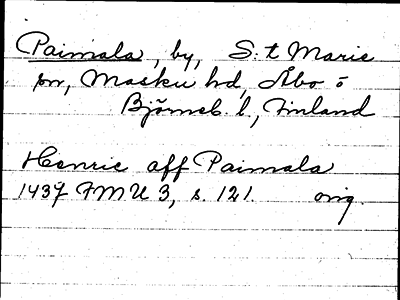 Paimala, by, S:t Marie
sn, Masku hd, Åbo o
Björneb. l., Finland
Henric aff Paimala
1437 FMU 3, s. 121. orig.